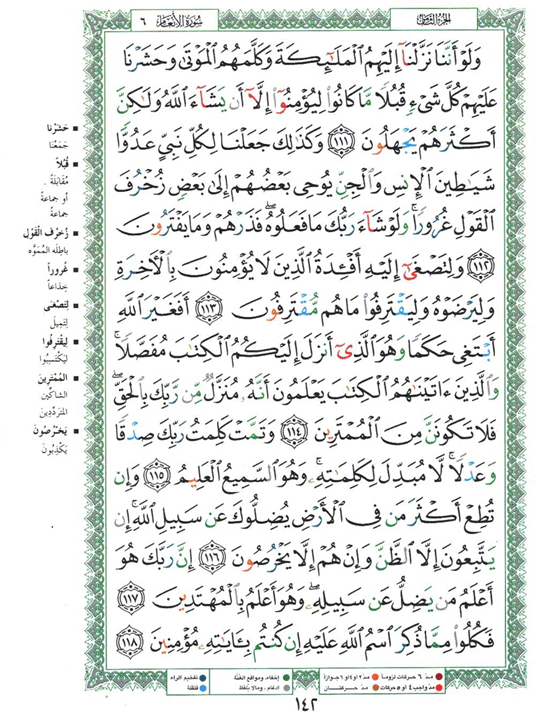 الجزء الثامن
سورة الأنعام ٦
وَلَوْ أَنَّنَا نَزَّلْنَآ إِلَيْهِمُ ٱلْمَلَٰٓئِكَةَ وَكَلَّمَهُمُ ٱلْمَوْتَىٰ وَحَشَرْنَا
عَلَيْهِمْ كُلَّ شَىْءٍ قُبُلًا مَّا كَانُوا۟ لِيُؤْمِنُوٓا۟ إِلَّآ أَن يَشَآءَ ٱللَّهُ وَلَٰكِنَّ
أَكْثَرَهُمْ يَجْهَلُونَ ١١١ وَكَذَٰلِكَ جَعَلْنَا لِكُلِّ نَبِىٍّ عَدُوًّا
شَيَٰطِينَ ٱلْإِنسِ وَٱلْجِنِّ يُوحِى بَعْضُهُمْ إِلَىٰ بَعْضٍ زُخْرُفَ
ٱلْقَوْلِ غُرُورًا ۚ وَلَوْ شَآءَ رَبُّكَ مَا فَعَلُوهُ ۖ فَذَرْهُمْ وَمَا يَفْتَرُونَ
١١٢ وَلِتَصْغَىٰٓ إِلَيْهِ أَفْـِٔدَةُ ٱلَّذِينَ لَا يُؤْمِنُونَ بِٱلْءَاخِرَةِ
وَلِيَرْضَوْهُ وَلِيَقْتَرِفُوا۟ مَا هُم مُّقْتَرِفُونَ ١١٣ أَفَغَيْرَ ٱللَّهِ
أَبْتَغِى حَكَمًا وَهُوَ ٱلَّذِىٓ أَنزَلَ إِلَيْكُمُ ٱلْكِتَٰبَ مُفَصَّلًا ۚ
وَٱلَّذِينَ ءَاتَيْنَٰهُمُ ٱلْكِتَٰبَ يَعْلَمُونَ أَنَّهُۥ مُنَزَّلٌ مِّن رَّبِّكَ بِٱلْحَقِّ ۖ
فَلَا تَكُونَنَّ مِنَ ٱلْمُمْتَرِينَ ١١٤ وَتَمَّتْ كَلِمَتُ رَبِّكَ صِدْقًا
وَعَدْلًا ۚ لَّا مُبَدِّلَ لِكَلِمَٰتِهِۦ ۚ وَهُوَ ٱلسَّمِيعُ ٱلْعَلِيمُ ١١٥ وَإِن
تُطِعْ أَكْثَرَ مَن فِى ٱلْأَرْضِ يُضِلُّوكَ عَن سَبِيلِ ٱللَّهِ ۚ إِن
يَتَّبِعُونَ إِلَّا ٱلظَّنَّ وَإِنْ هُمْ إِلَّا يَخْرُصُونَ ١١٦ إِنَّ رَبَّكَ هُوَ
أَعْلَمُ مَن يَضِلُّ عَن سَبِيلِهِۦ ۖ وَهُوَ أَعْلَمُ بِٱلْمُهْتَدِينَ ١١٧
فَكُلُوا۟ مِمَّا ذُكِرَ ٱسْمُ ٱللَّهِ عَلَيْهِ إِن كُنتُم بِـَٔايَٰتِهِۦ مُؤْمِنِينَ ١١٨
■ حَشَرْنا
جَمَعْنا
■ قُبُلاً
مُقَابَلَةً
أو جماعةً
جماعةً
■ زُخْرُفَ القَوْل
باطِلَه المُمَوَّه
■ غُروراً
خِدَاعاً
■ لِتَصْغَى
لِتَمِيلَ
■ لِيَقْتَرِفُوا
لِيَكْتَسِبُوا
■ المُمْتَرِين
الشاكِّين
المتردِّدين
■ يَخْرُصُون
يَكْذِبُون
مدّ ٦ حركات لزوماً
مدّ ٢ او ٤ او ٦ جوازاً
إخفاء، ومواقع الغُنَّة
تفخيم الراء
مدّ واجب ٤ او ٥ حركات
مدّ حركتان
ادغام، ومالا يُلفظ
قلقلة
١٤٢